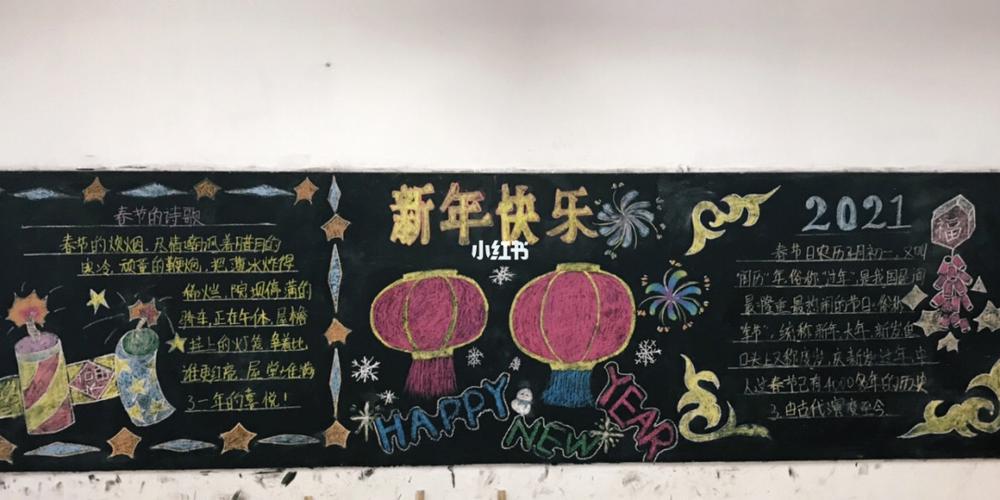 春节的诗歌
春节的炊烟、尽情嘲讽着腊月的
寒冷、顽童的鞭炮、把薄冰炸得
稀烂、院坝停满的
骑车、正在午休、屋檐
挂上的灯笼、争着比
谁更红亮、屋里
一年的喜悦!
新年快乐
小红书
HAPPY
NEW
YEAR
福
2021
春节日农历正月初一、又叫
年、俗称"过年"是我国民间
最隆重最热闹的节日、俗称
年节"、统称新年、大年、新岁、但
口头上又称度岁、庆新岁、过年、中
人过春节已有4000多年的历史
由古代演变至今
福